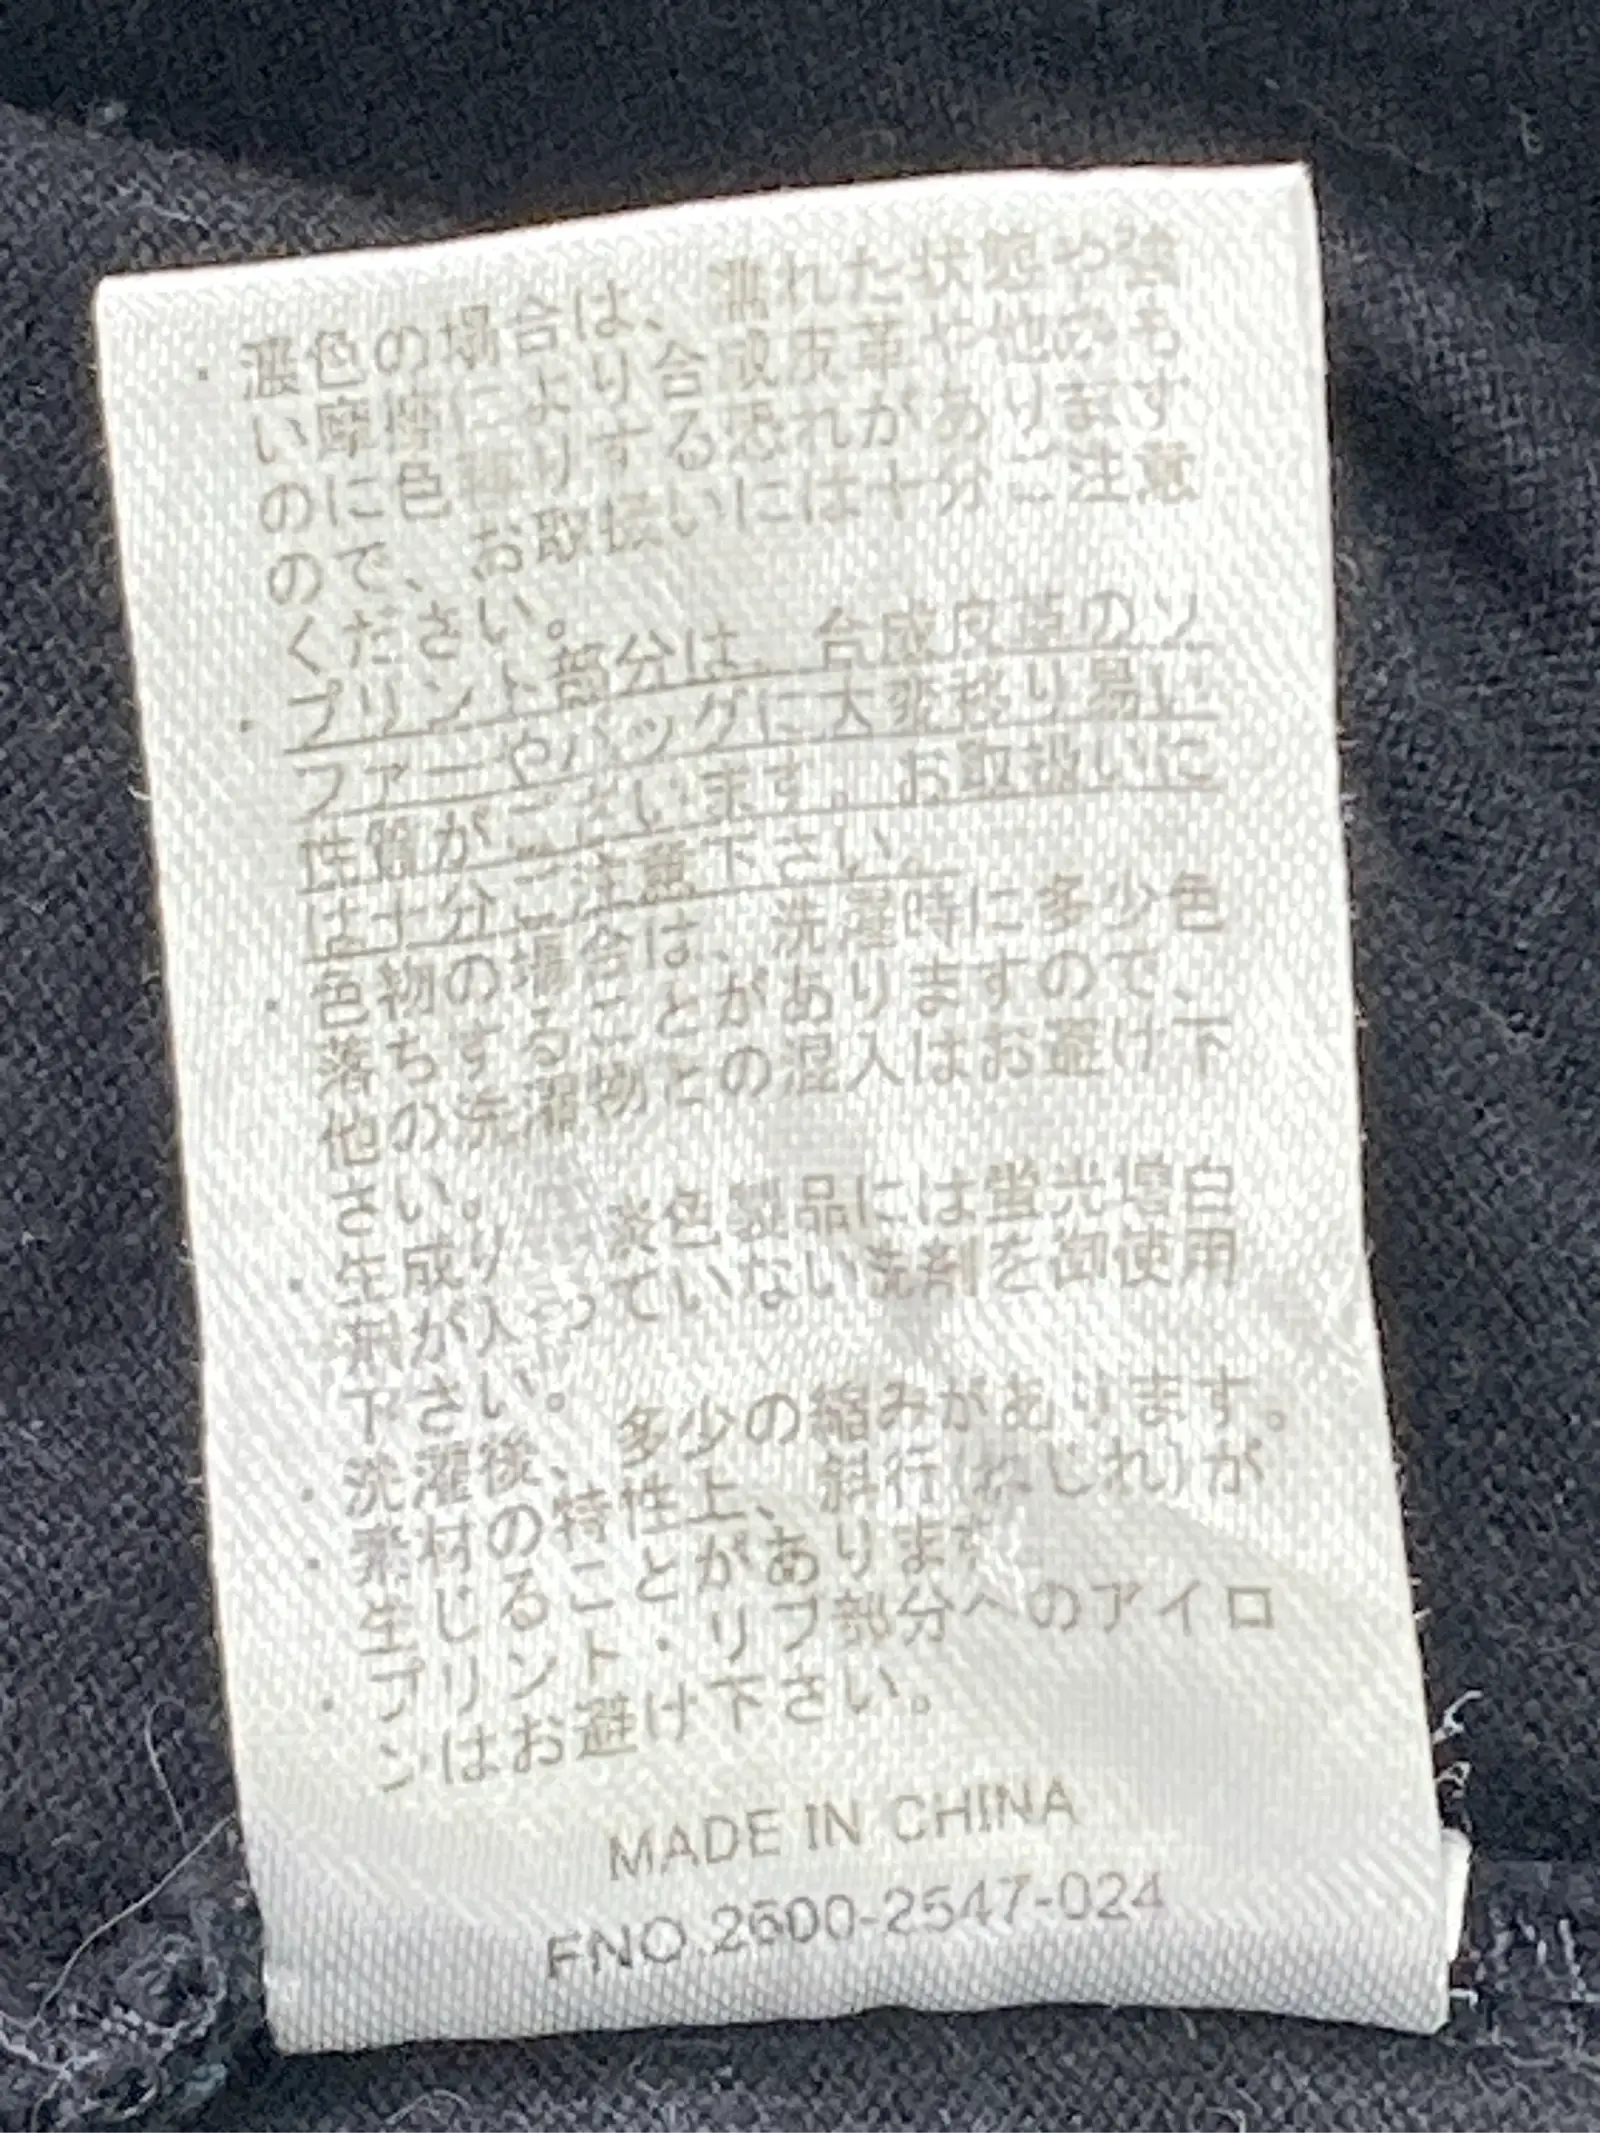 ・濃色の場合は、濡れた状態や強
い摩擦により合成皮革や他のも
のに色移りする恐れがあります
ので、お取扱いには十分ご注意
ください。
・プリント部分は、合成皮革のソ
ファーやバッグに大変移り易い
性質がございます。お取扱いに
は十分ご注意下さい。
・色物の場合は、洗濯時に多少色
落ちすることがありますので、
他の洗濯物との混入はお避け下
さい。
・生成り、淡色製品には蛍光増白
剤が入っていない洗剤を御使用
下さい。
・洗濯後、多少の縮みがあります。
・素材の特性上、斜行(ねじれ)が
生じることがあります
・プリント・リブ部分へのアイロ
ンはお避け下さい。
MADE IN CHINA
FNO.2600-2547-024